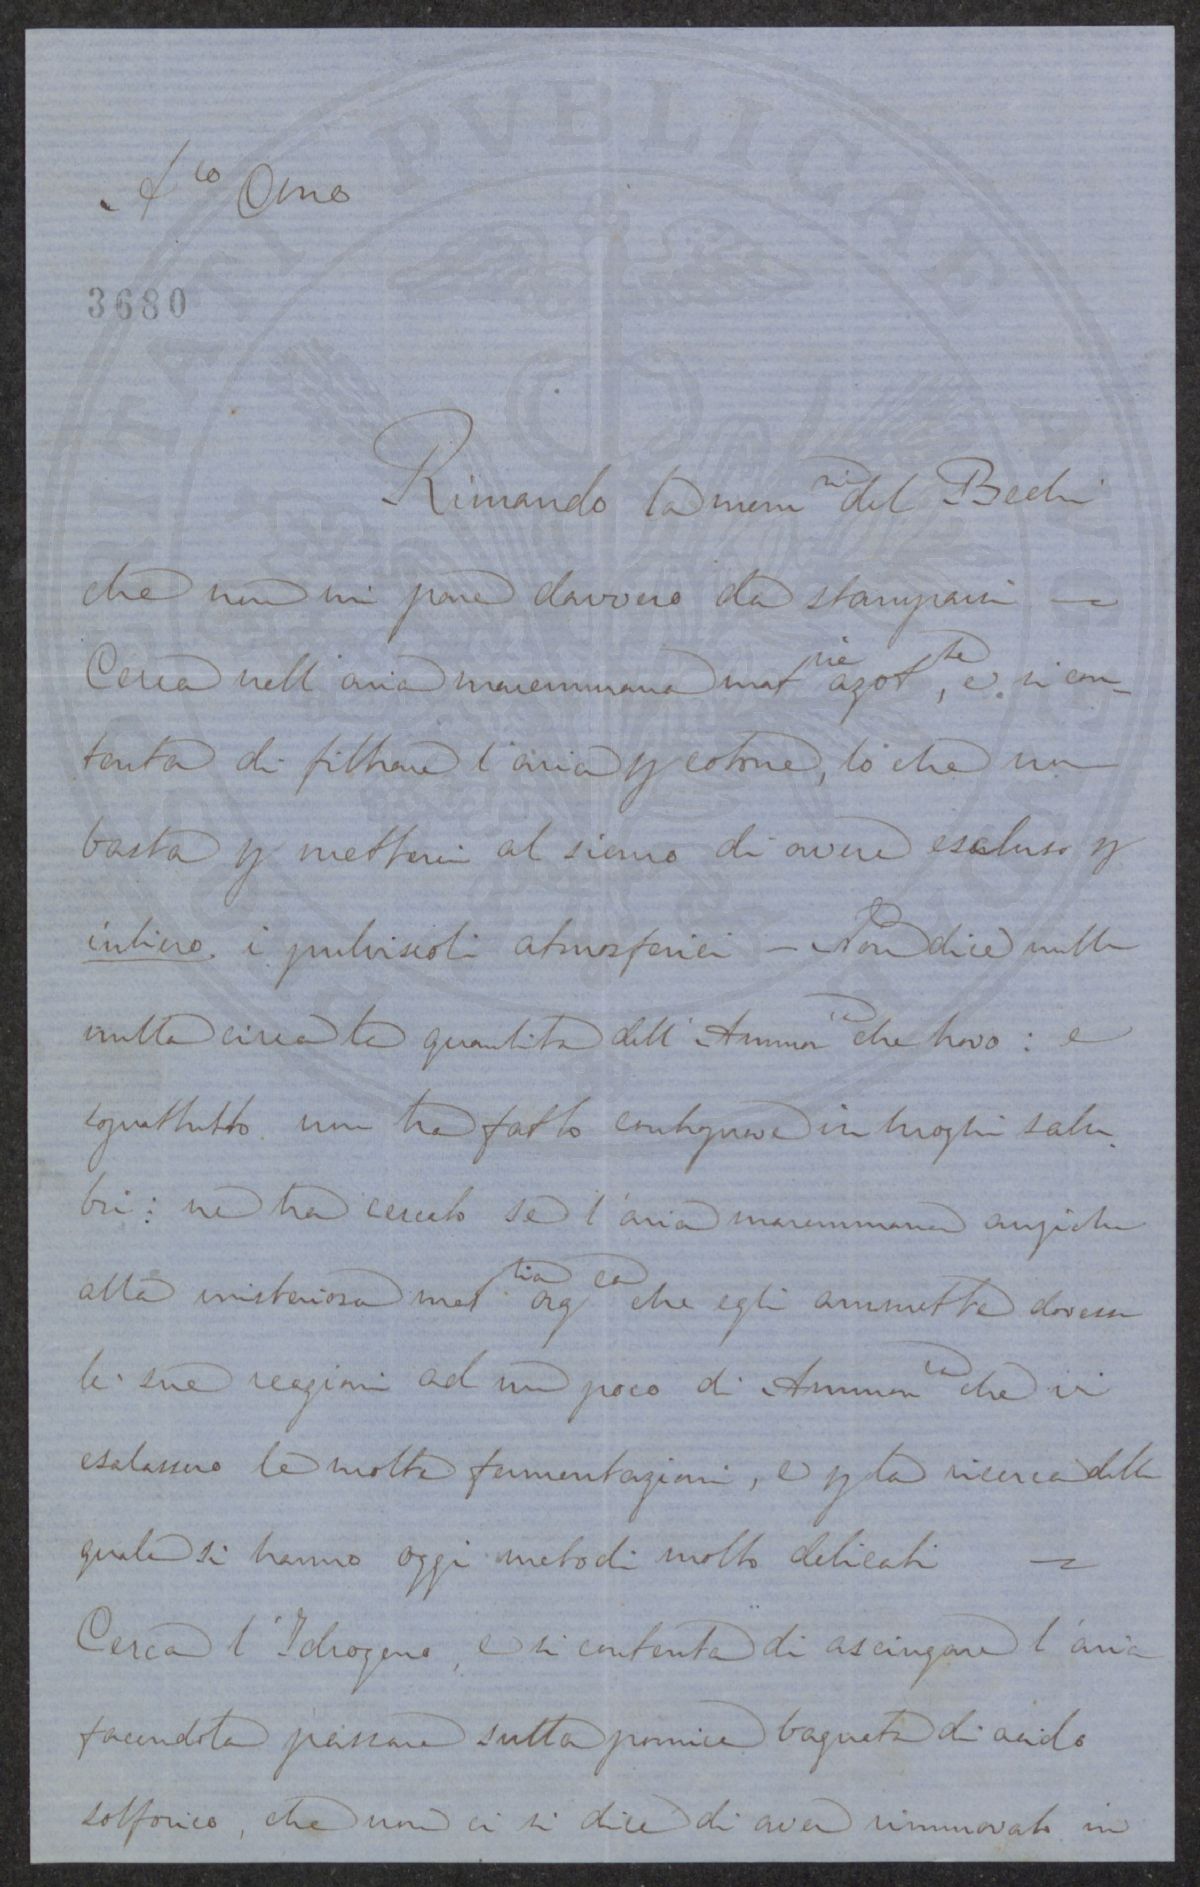 A.co Omo
3680
Rimando la mem.ria del Bechi
che non mi pare davvero da stamparsi —
Cerca nell'aria maremmana mat.rie azot.te, e si con-
tenta di filtrare l'aria p cotone, lo che non
basta p mettersi al sicuro di avere escluso p
intiero i pulviscoli atmosferici — Non dice nulla
nulla circa la quantità dell'Ammon.ca che trovò: e
sopratutto non ha fatto controprove in luoghi salu-
bri: nè ha cercato se l'aria maremmana anziche
alla misteriosa mat.ria org.ca che egli ammette dovesse
le sue reazioni ad un poco di Ammon.ca che ivi
esalassero le molte fermentazioni, e p la ricerca della
quale si hanno oggi metodi molto delicati —
Cerca l'Idrogeno, e si contenta di asciugare l'aria
facendola passare sulla pomice bagnata di acido
solforico, che non ci si dice di aver rinnovato in
PVBLICAE